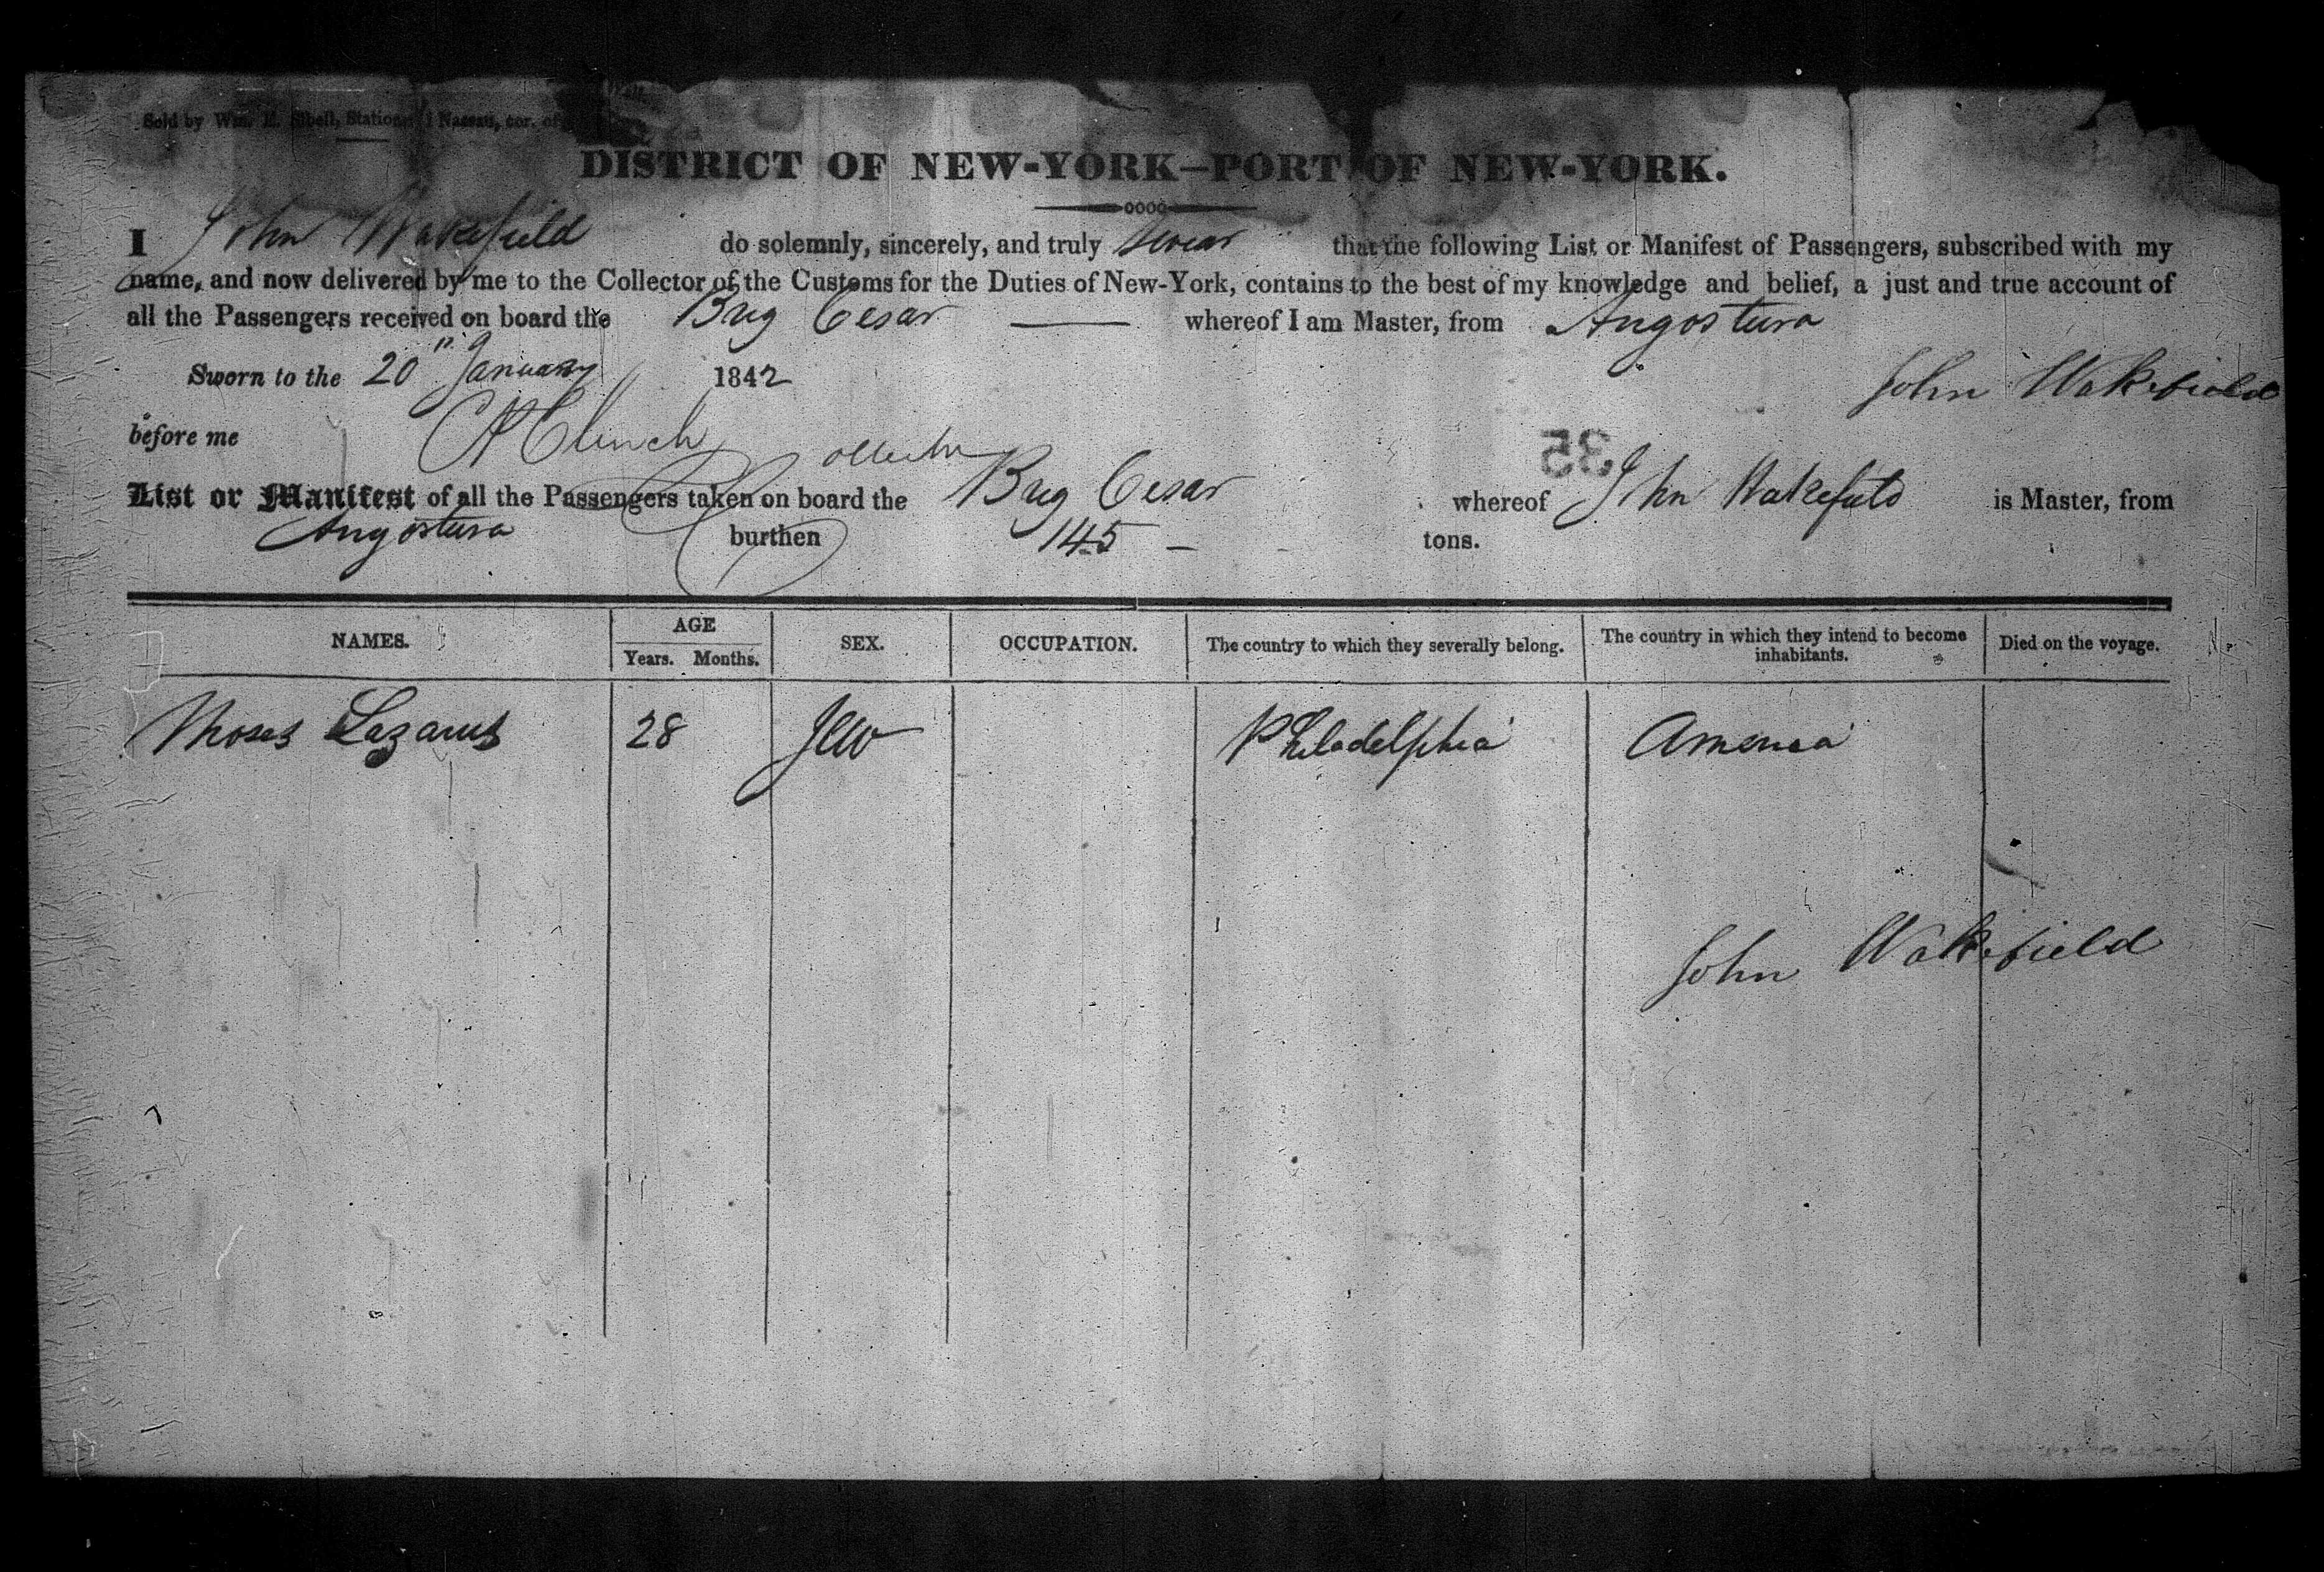 Sold by Wm. H. Stationer, 1 Nassau, cor. of Wall
DISTRICT OF NEW-YORK—PORT OF NEW-YORK.
I John Wakefield do solemnly, sincerely, and truly swear that the following List or Manifest of Passengers, subscribed with my
name, and now delivered by me to the Collector of the Customs for the Duties of New-York, contains to the best of my knowledge and belief, a just and true account of
all the Passengers received on board the Brig Cesar — whereof I am Master, from Angostura
Sworn to the 20" January 1842
John Wakefield
before me Clinch
35
List or Manifest of all the Passengers taken on board the Brig Cesar whereof John Wakefield is Master, from
Angostura burthen 145 – tons.
NAMES. AGE Years. Months. SEX. OCCUPATION. The country to which they severally belong. The country in which they intend to become inhabitants. Died on the voyage.
Moses Lazarus 28 Jew Philadelphia America
John Wakefield